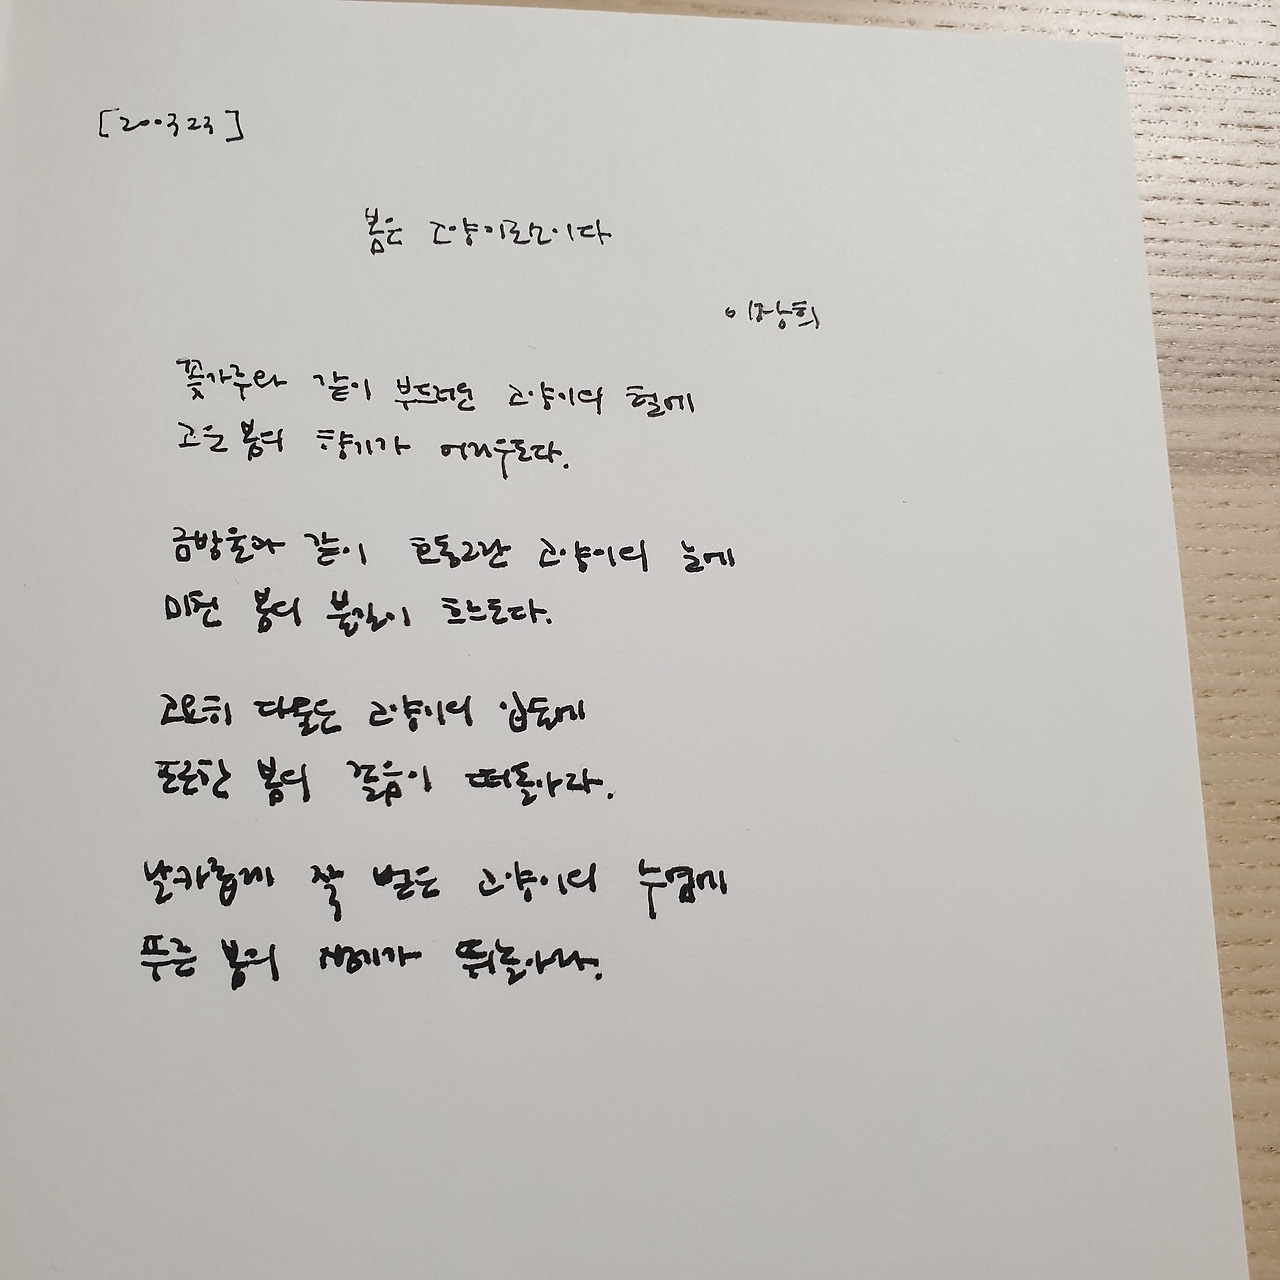 [200323]
봄은 고양이로소이다
이장희
꽃가루와 같이 부드러운 고양이의 털에
고운 봄의 향기가 어리우도다.
금방울과 같이 호동그란 고양이의 눈에
미친 봄의 불길이 흐르도다.
고요히 다물은 고양이의 입술에
포근한 봄의 졸음이 떠돌아라.
날카롭게 쭉 뻗은 고양이의 수염에
푸른 봄의 생기가 뛰놀아라.